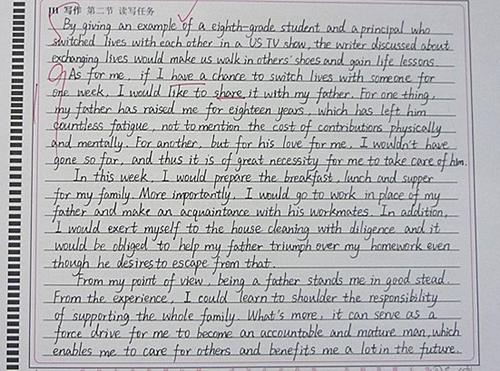 III 写作 第二节 读写任务
By giving an example of a eighth-grade student and a principal who
switched lives with each other in a US TV show, the writer discussed about
exchanging lives would make us walk in others' shoes and gain life lessons.
As for me, if I have a chance to switch lives with someone for
one week, I would like to share it with my father. For one thing,
my father has raised me for eighteen years, which has left him
countless fatigue, not to mention the cost of contributions physically
and mentally. For another, but for his love for me, I wouldn't have
gone so far, and thus it is of great necessity for me to take care of him.
In this week, I would prepare the breakfast, lunch and supper
for my family. More importantly, I would go to work in place of my
father and make an acquaintance with his workmates. In addition,
I would exert myself to the house cleaning with diligence and it
would be obliged to help my father triumph over my homework even
though he desires to escape from that.
From my point of view, being a father stands me in good stead.
From the experience, I could learn to shoulder the responsibility
of supporting the whole family. What's more, it can serve as a
force drive for me to become an accountable and mature man, which
enables me to care for others and benefits me a lot in the future.